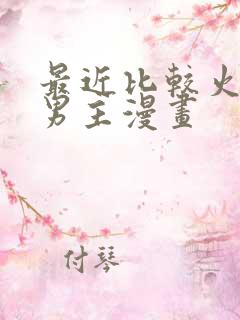 最近比較火
男主漫畫
付琴